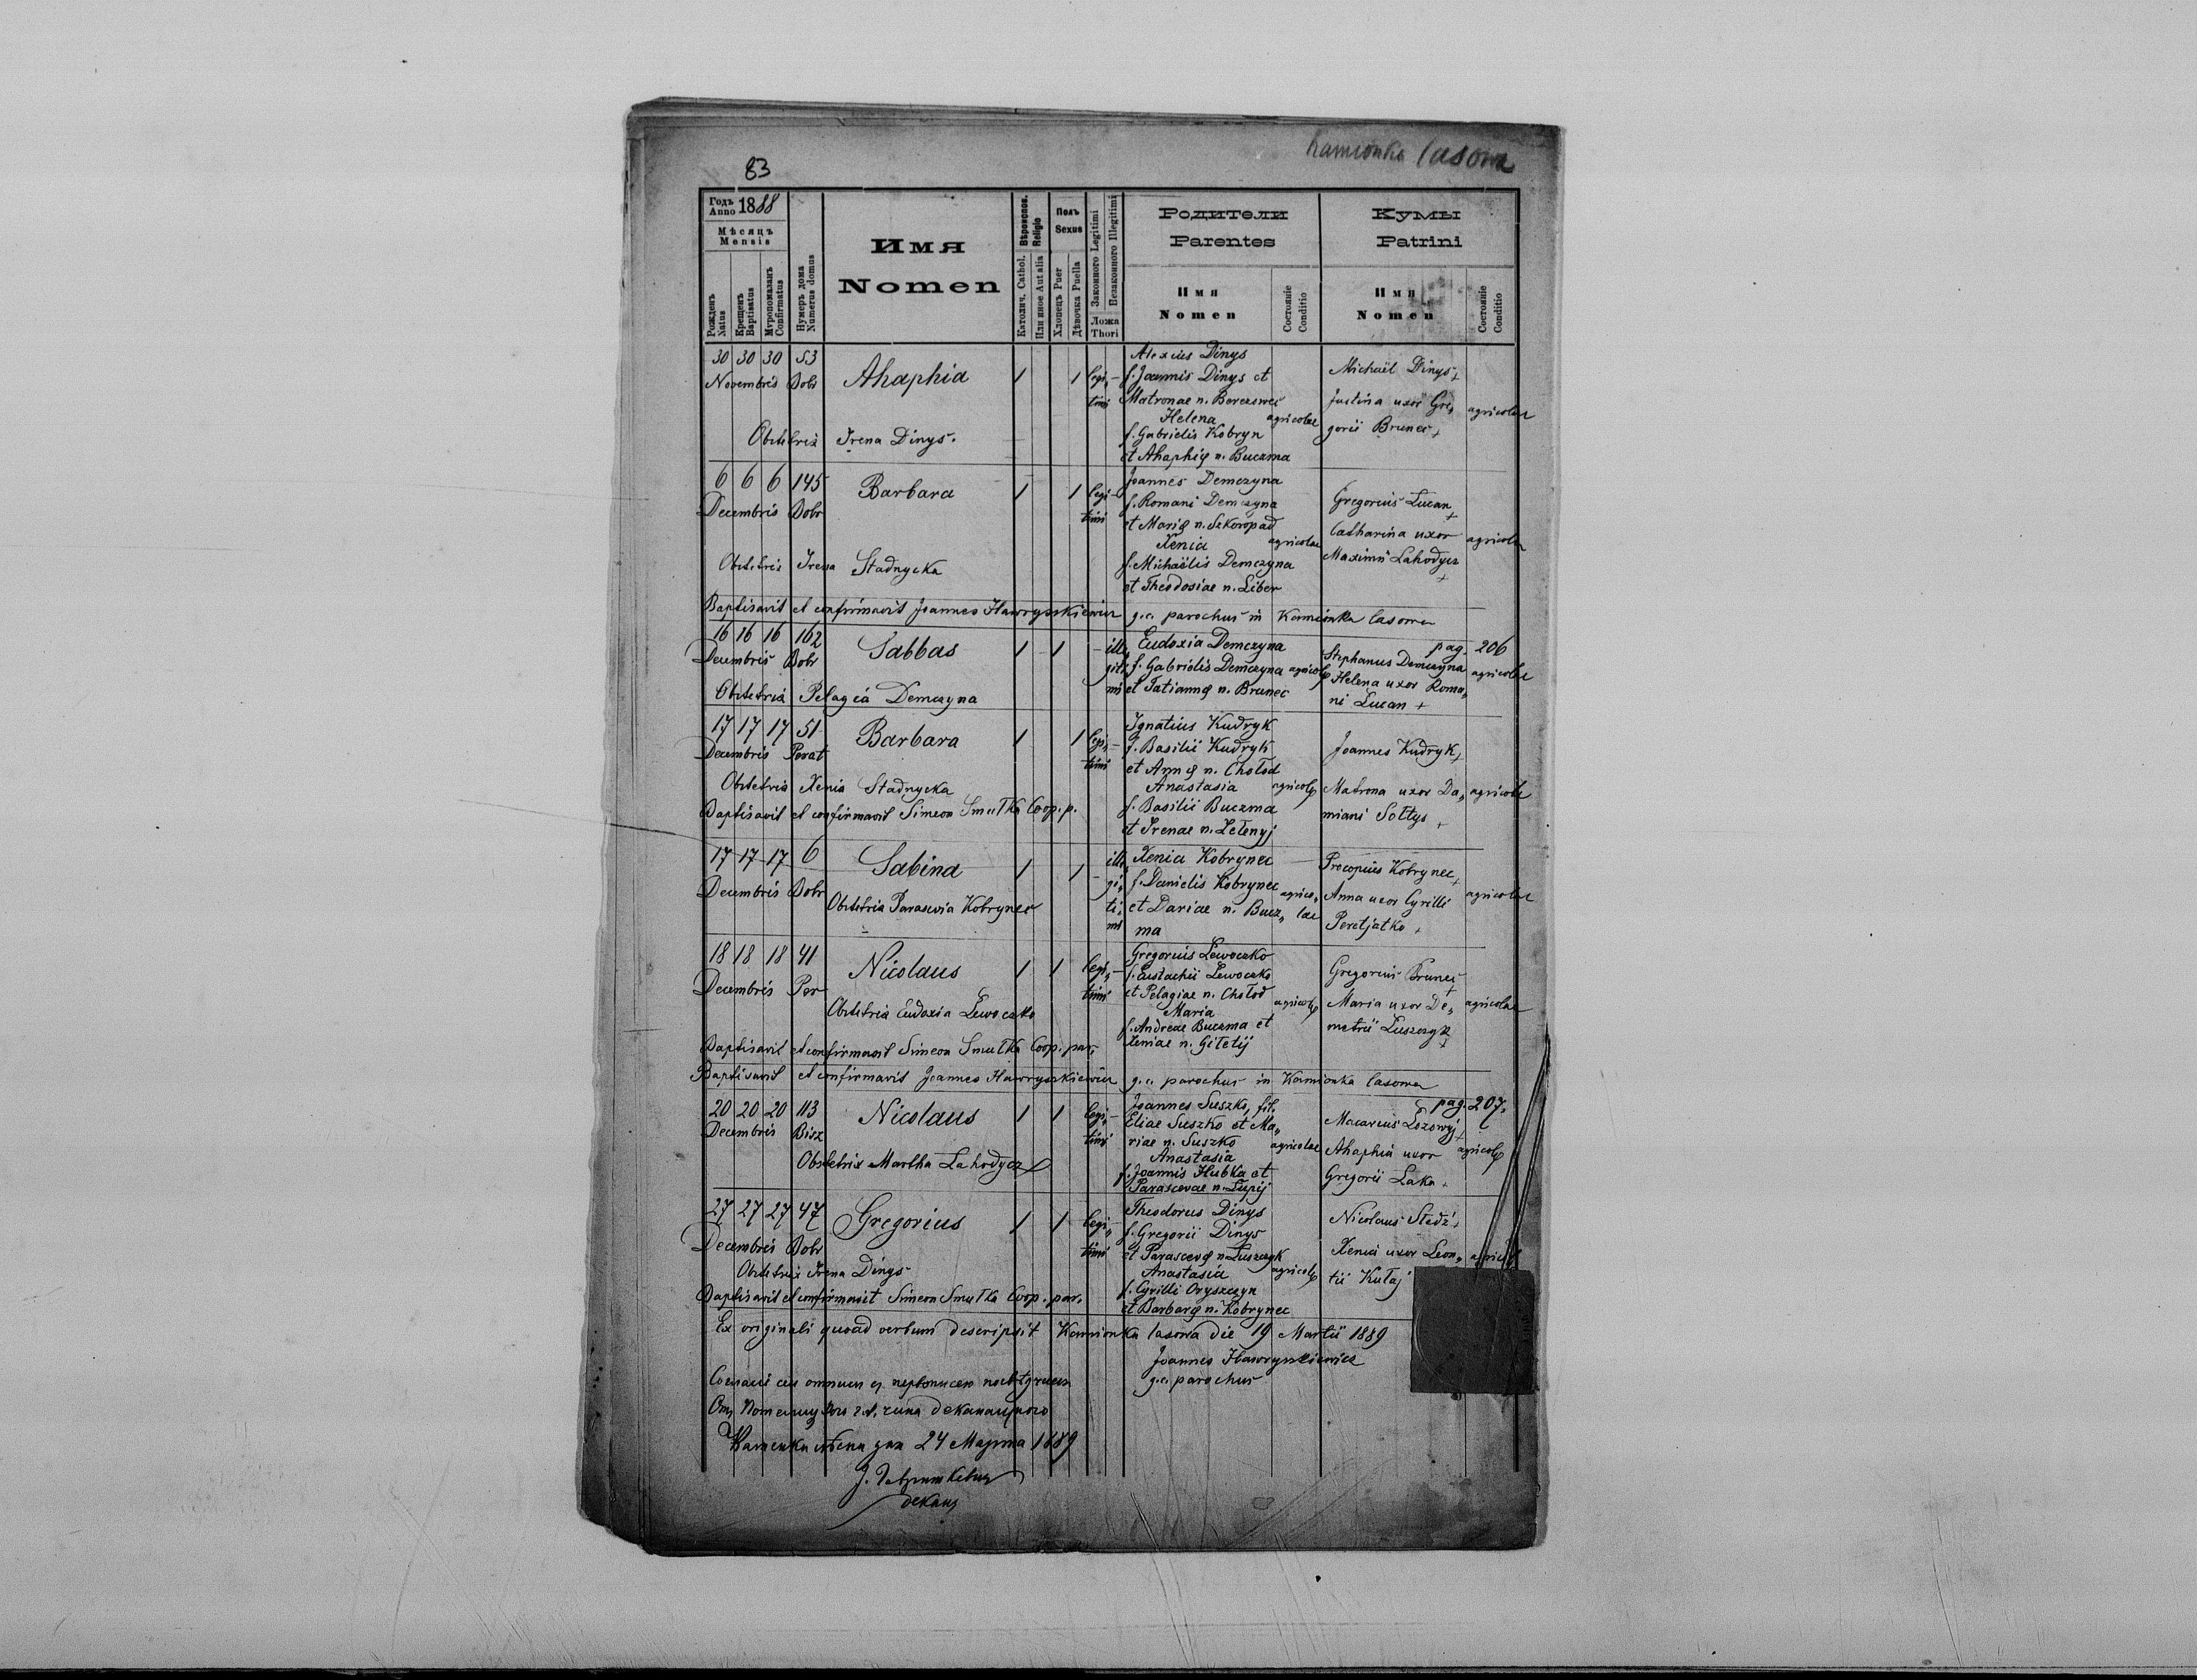 Kamionka lasowa
83
Годъ Anno 1888
Мѣсяць Mensis
Рожденъ Natus
Крещенъ Baptisatus
Мѵропомазанъ Confirmatus
Нумеръ дома Numerus domus
Имя
Nomen
Вѣроиспов. Religio
Католич. Cathol.
Или иное Aut alia
Полъ Sexus
Хлопець Puer
Дѣвочка Puella
Законного Legitimi
Незаконного Illegitimi
Ложа Thori
Родители
Parentes
Имя Nomen
Состояніе Conditio
Кумы
Patrini
Имя Nomen
Состояніе Conditio
30 30 30 53
Novembris Dobr
Ahaphia
1 1 legi„timi
Alexius Dinys
f. Joannis Dinys et
Matronae n. Berezowec
Helena agricolae
f. Gabrielis Kobryn
et Ahaphię n. Buczma
Michaël Dinys +
Justina uxor Gre„
gorii Brunec + agricolae
Obstetrix Irena Dinys.
6 6 6 145
Decembris Dobr
Barbara
1 1 legi„timi
Joannes Demczyna
f. Romani Demczyna
et Marię n. Szkoropad
Xenia agricolae
f. Michaëlis Demczyna
et Theodosiae n. Liber
Gregorius Lucan +
Catharina uxor agricolae
Maximi Lahodycz +
Obstetrix Irena Stadnycka
Baptisavit et confirmavit Joannes Hawryszkiewicz g.c. parochus in Kamionka lasowa
pag. 206
16 16 16 162
Decembris Dobr
Sabbas
1 1 ille„giti„mi
Eudoxia Demczyna
f. Gabrielis Demczyna agricolę
et Tatiannę n. Brunec
Stephanus Demczyna agricolae
Helena uxor Roma„
ni Lucan +
Obstetrix Pelagia Demczyna
17 17 17 51
Decembris Perat
Barbara
1 1 legi„timi
Ignatius Kudryk
f. Basilii Kudryk
et Annę n. Chołod
Anastasia agricolę
f. Basilii Buczma
et Irenae n. Zełenyj
Joannes Kudryk +
Matrona uxor Da„ agricolae
miani Sołtys +
Obstetrix Xenia Stadnycka
Baptisavit et confirmavit Simeon Smułka Coop. p.
17 17 17 6
Decembris Dobr
Sabina
1 1 ille„gi„ti„mi
Xenia Kobrynec
f. Danielis Kobrynec agrico„
et Dariae n. Bucz„ lae
ma
Procopius Kobrynec +
Anna uxor Cyrilli agricolae
Peretjatko +
Obstetrix Parascevia Kobrynec
18 18 18 41
Decembris Per
Nicolaus
1 1 legi„timi
Gregorius Lewoczko
f. Eustachii Lewoczko
et Pelagiae n. Chołod
Maria agricolę
f. Andreae Buczma et
Xeniae n. Gitełij
Gregorius Brunec +
Maria uxor De„ agricolae
metrii Luszczyk +
Obstetrix Eudoxia Lewoczko
Baptisavit et confirmavit Simeon Smułka Coop. par.
Baptisavit et confirmavit Joannes Hawryszkiewicz g.c. parochus in Kamionka lasowa
pag. 207.
20 20 20 113
Decembris Bisz
Nicolaus
1 1 legi„timi
Joannes Suszko, fil.
Eliae Suszko et Ma„
riae n. Suszko
Anastasia agricolae
f. Joannis Hubka et
Parascevae n. Łupij
Macarius Lozowyj +
Ahaphia uxor agricolę
Gregorii Laka +
Obstetrix Martha Lahodycz
27 27 27 47
Decembris Dobr
Gregorius
1 1 legi„timi
Theodorus Dinys
f. Gregorii Dinys
et Parascevę n. Luszczyk
Anastasia agricolę
f. Cyrilli Oryszczyn
et Barbarę n. Kobrynec
Nicolaus Sledź +
Xenia uxor Leon„
tii Kutaj
Obstetrix Irena Dinys
Baptisavit et confirmavit Simeon Smułka Coop. par.
Ex originali quoad verbum descripsit Kamionka lasowa die 19 Martii 1889
Joannes Hawryszkiewicz
g.c. parochus
деканального
Каменка лѣсна дня 24 Марта 1889
І. Гавришкевичъ
деканъ